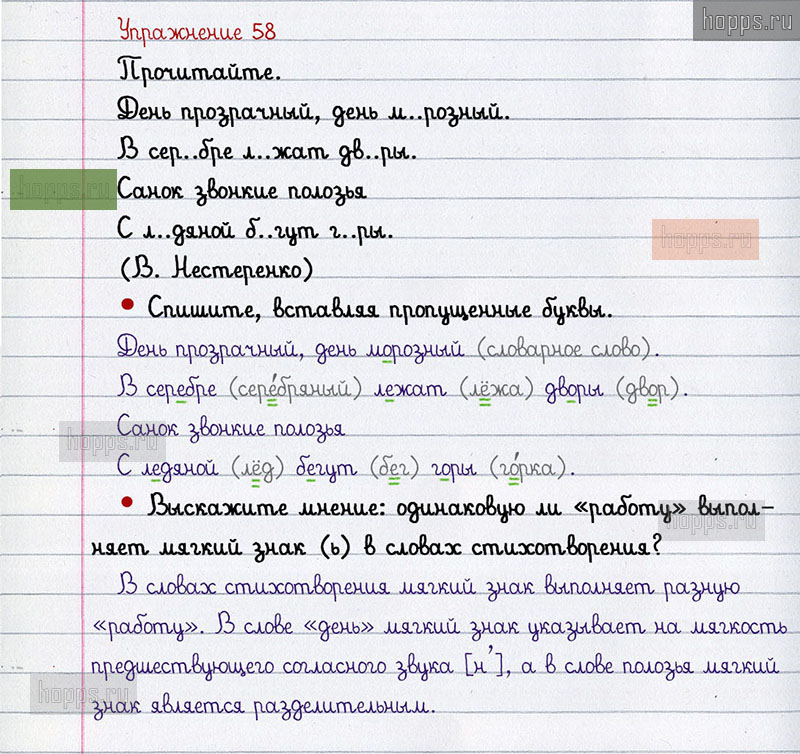 hopps.ru
Упражнение 58
Прочитайте.
День прозрачный, день м..розный.
В сер..бре л..жат дв..ры.
hopps.ru
Санок звонкие полозья
С л..дяной б..гут г..ры.
hopps.ru
(В. Нестеренко)
• Спишите, вставляя пропущенные буквы.
День прозрачный, день морозный (словарное слово).
В серебре (сере́бряный) лежат (лёжа) дворы (двор).
Санок звонкие полозья
hopps.ru
С ледяной (лёд) бегут (бег) горы (го́рка).
• Выскажите мнение: одинаковую ли «работу» выпол-
hopps.ru
няет мягкий знак (ь) в словах стихотворения?
В словах стихотворения мягкий знак выполняет разную
«работу». В слове «день» мягкий знак указывает на мягкость
предшествующего согласного звука [н'], а в слове полозья мягкий
hopps.ru
знак является разделительным.